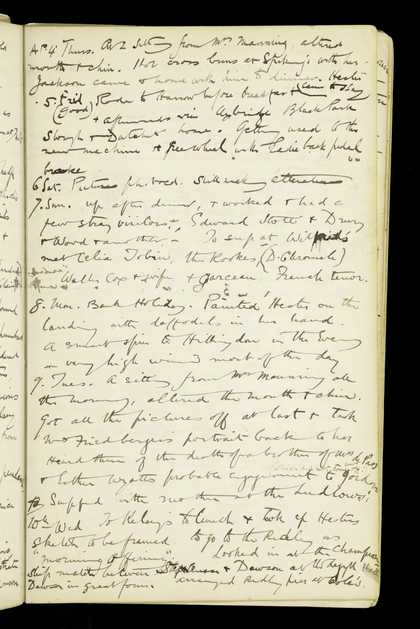 Ap 4 Thurs. A 2 Sitting from Mrs Manning, altered
mouth & chin. Hot cross buns at Stirling's with her.
Jackson came & home with him to dinner. Hester
5 Frid (good) Rode to Harrow before breakfast & came to stay
& afternoon via Uxbridge Black Park
Slough & Datchet home. Getting used to the
new machine & free wheel with Eadie back pedal
brake
6 Sat. Pictures ph.
7. Sun. up after dinner, & worked & had a
few stray visitors, Edward Stott & Drury
& Ward & another. To sup at Wilfrid's
met Celia Tobin, the Rookes, (D. Chronicle)
Walls, Cox & wife & Garceau French tenor.
8. Mon. Bank Holiday. Painted Hester on the
landing with daffodils in his hand.
A smart spin to Hillingdon in the Evening
very high wind most of the day
9. Tues. A sitting from Mrs Manning all
the morning, altered the mouth & chin.
Got all the pictures off at last & took
Mrs Friedberger's portrait back to her
Heard there of the death of a brother of Mrs
& later Wyatt's probable appointment to Gordon
Supped with mother at the Ludlows
10th Wed To Kelsey's to lunch & took up Hester's
sketch to be framed to go to the Ridley as
"morning offering" Looked in at the Champion
ship match between Stephenson & Dawson at
Dawson in great form. arranged Ridley pics at